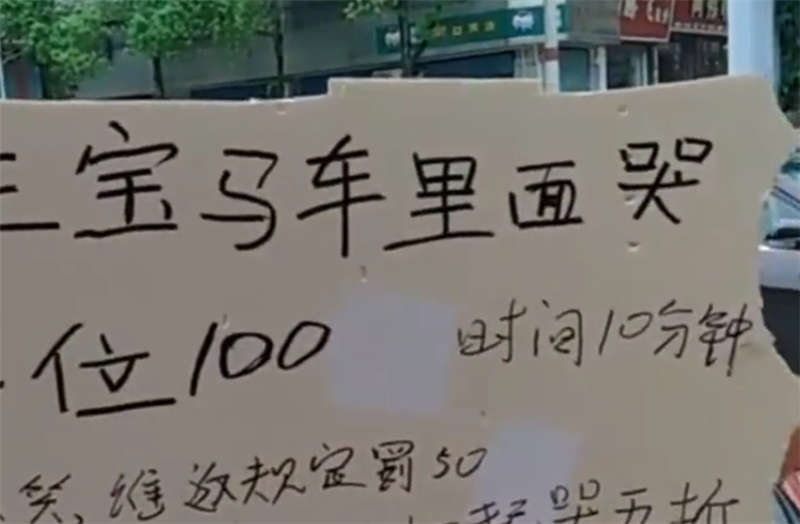 宝马车里面哭
位100 时间10分钟
笑,维返规定罚50
起哭五折